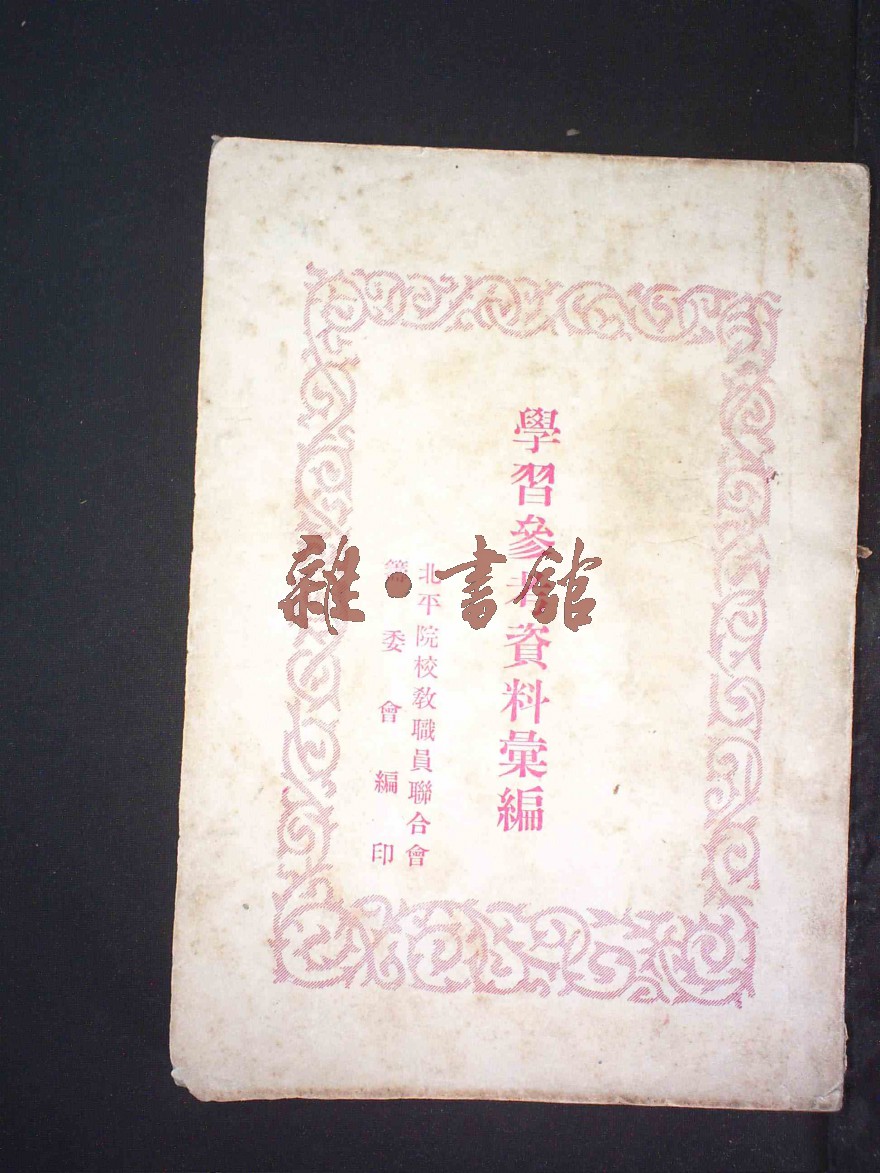 學習參考資料彙編
北平院校教職員聯合會
籌委會編印
雜•書館